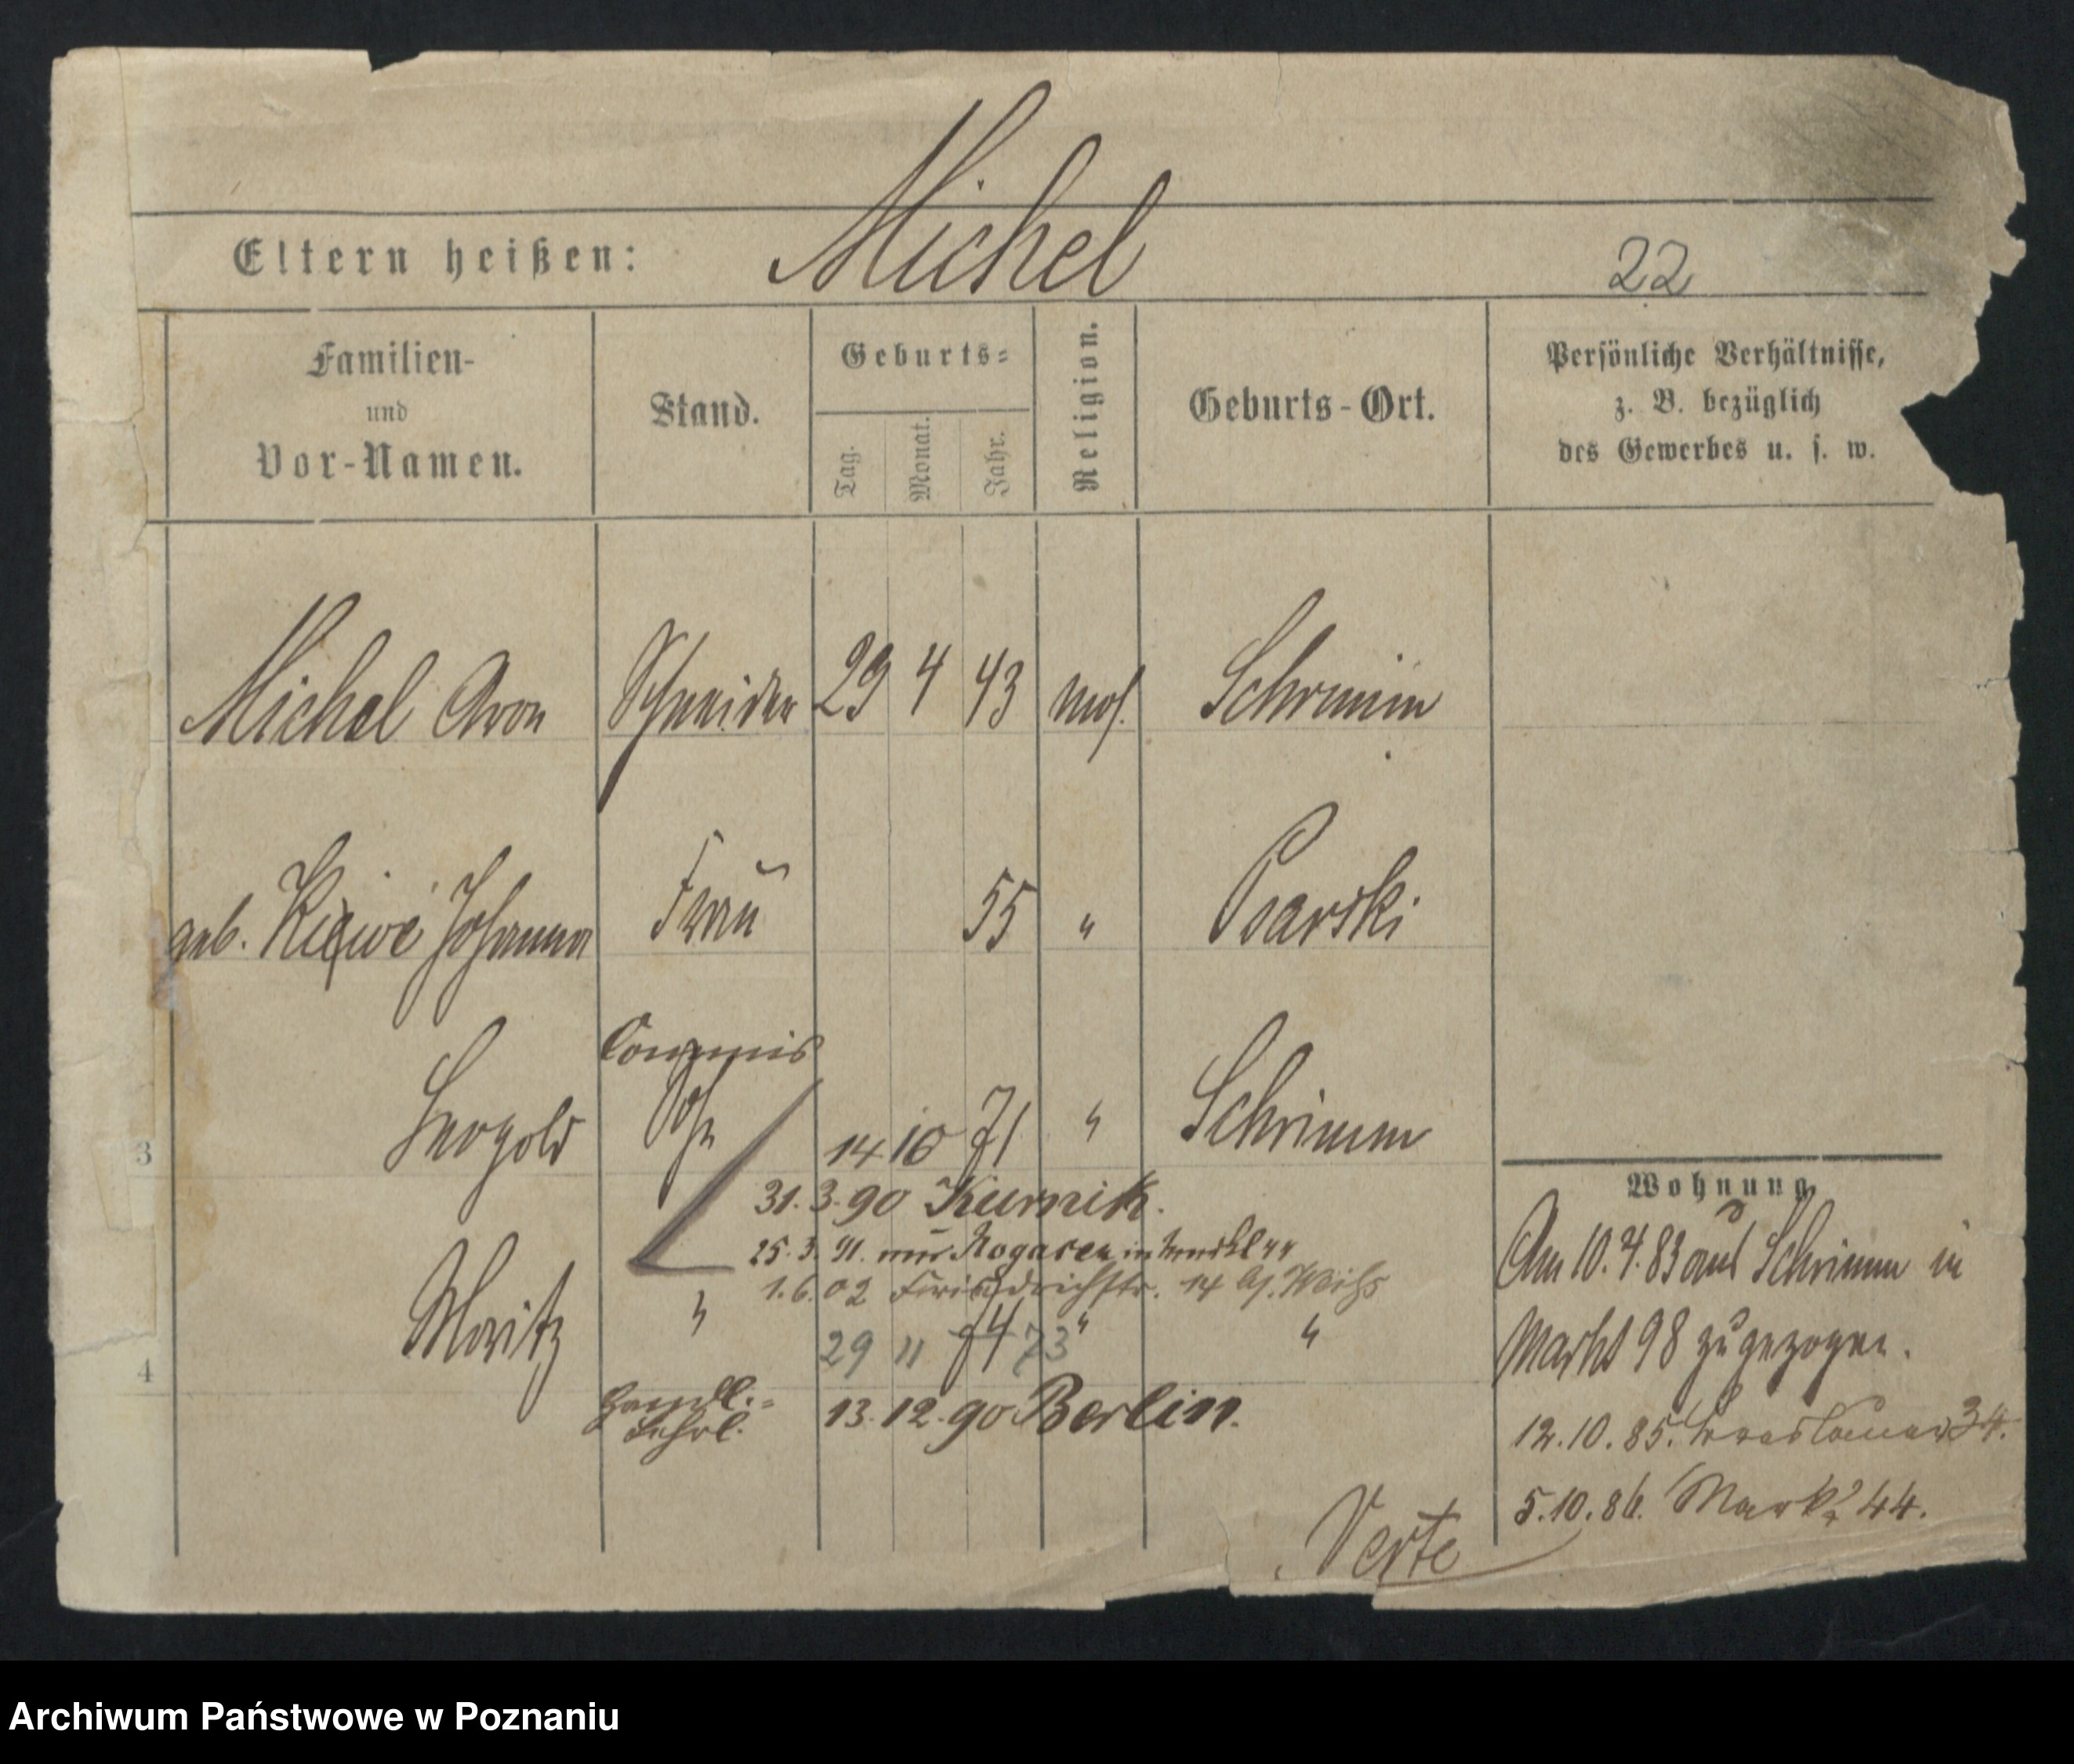 Michel
Eltern heißen:
22
Familien-
und
Vor-Namen.
Stand.
Geburts-
Tag.
Monat.
Jahr.
Religion.
Geburts-Ort.
Persönliche Verhältnisse,
z. B. bezüglich
des Gewerbes u. s. w.
Michel Aron Schneider 29 4 43 mos. Schrimm
geb. Kiewe Johanna Frau 55 " Psarski
Commis
3 Leopold Sohn 14 10 71 " Schrimm
31.3.90 Kurnik.
25.3.91. aus Rogasen in 44
1.6.02 Friedrichstr. 14
4 Moritz " 29 11 74 73 " "
Handl.-
Lehrl.
13.12.90 Berlin.
Wohnung
Am 10.4.83 aus Schrimm in
Markt 98 zugezogen.
12.10.85. 34.
5.10.86. Markt 44.
Verte
Archiwum Państwowe w Poznaniu